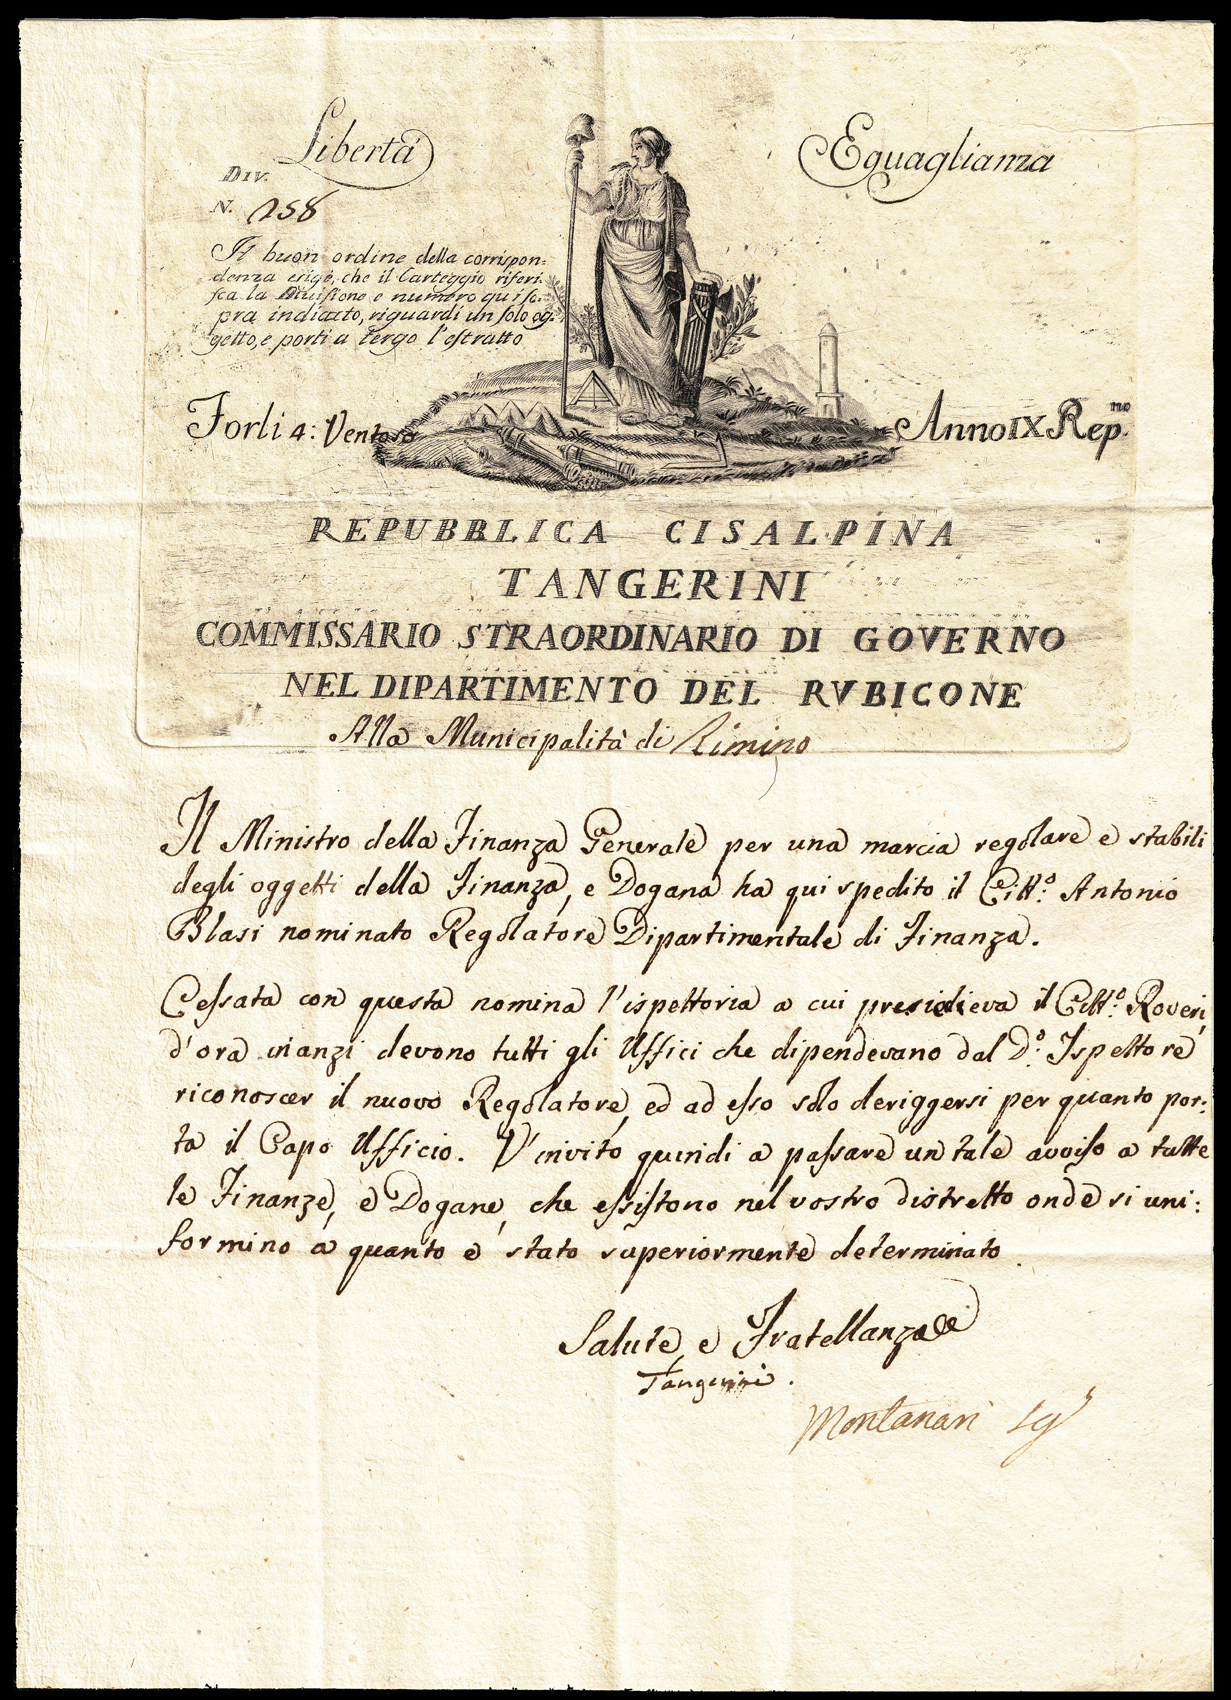 Libertà
Eguaglianza
Div.
N. 258
Il buon ordine della corrispon:
denza esige, che il Carteggio riferi-
sca la Divisione e numero qui so:
pra indicato, riguardi un solo og-
getto, e porti a tergo l'estratto
Forlì 4: Ventoso
Anno IX Rep.no
REPUBBLICA CISALPINA
TANGERINI
COMMISSARIO STRAORDINARIO DI GOVERNO
NEL DIPARTIMENTO DEL RVBICONE
Alla Municipalità di Rimino
Il Ministro della Finanza Generale per una marcia regolare e stabili
degli oggetti della Finanza, e Dogana ha qui spedito il Citt.o Antonio
Blasi nominato Regolatore Dipartimentale di Finanza.
Cessata con questa nomina l'ispettoria a cui presiedieva il Citt.o Roveri,
d'ora inanzi devono tutti gli Uffici che dipendevano dal D.o Ispettore
riconoscer il nuovo Regolatore, ed ad esso solo deriggersi per quanto por:
ta il Capo Ufficio. V'invito quindi a passare un tale avviso a tutte
le Finanze, e Dogane, che essistono nel vostro distretto onde si uni:
formino a quanto è stato superiormente determinato.
Salute, e Fratellanza
Tangerini.
Montanari